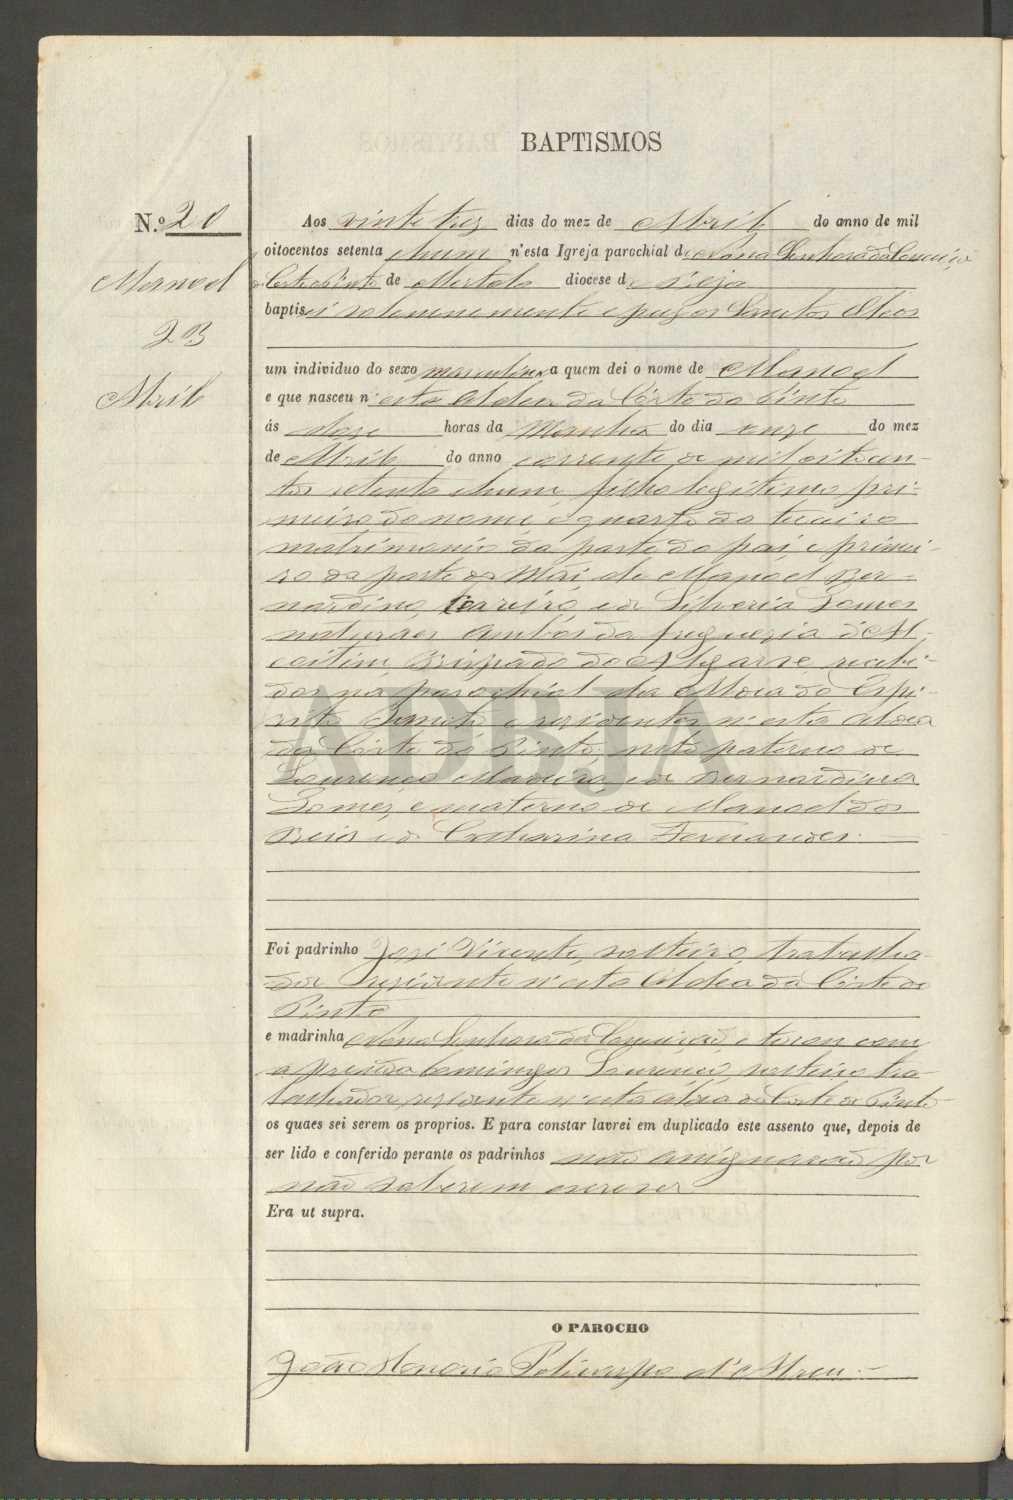 BAPTISMOS
N.º 20
Manoel
23
Abril
Aos vinte trez dias do mez de Abril do anno de mil
oitocentos setenta e hum n'esta Igreja parochial de Nossa Senhora da Conceição
da Corte do Pinto de Mertola diocese de Beja
baptisei solemnemente e puz os Santos Oleos
um individuo do sexo masculino a quem dei o nome de Manoel
e que nasceu n'esta Aldea da Côrte do Pinto
ás doze horas da Manhã do dia onze do mez
de Abril do anno corrente de mil oitocen-
tos setenta e hum, filho legitimo pri-
meiro do nome, e quarto do terceiro
matrimonio da parte do pai, e primei-
ro da parte da Mãi, de Manoel Ber-
nardino, e de Silveria Gomes
naturaes ambos da freguezia de Al-
coitim, Bispado do Algarve, recebi-
dos na parochial da Moria do Espi-
rito Santo e residentes n'esta Aldea
da Côrte do Pinto; neto paterno de
Lourenço Madeira, e de Bernardina
Gomes, e materno de Manoel dos
Reis e de Catharina Fernandes.
Foi padrinho José Vicente, solteiro, trabalha-
dor residente n'esta Aldea da Côrte do
Pinto
e madrinha Nossa Senhora da Conceição, e tocou com
a prenda Domingos Lourenço, solteiro tra-
balhador, residente n'esta aldea da Corte do Pinto
os quaes sei serem os proprios. E para constar lavrei em duplicado este assento que, depois de
ser lido e conferido perante os padrinhos não assignarão por
não saberem escrever
Era ut supra.
O PAROCHO
João Honorio Policarpo d'Abreu
ADBJA